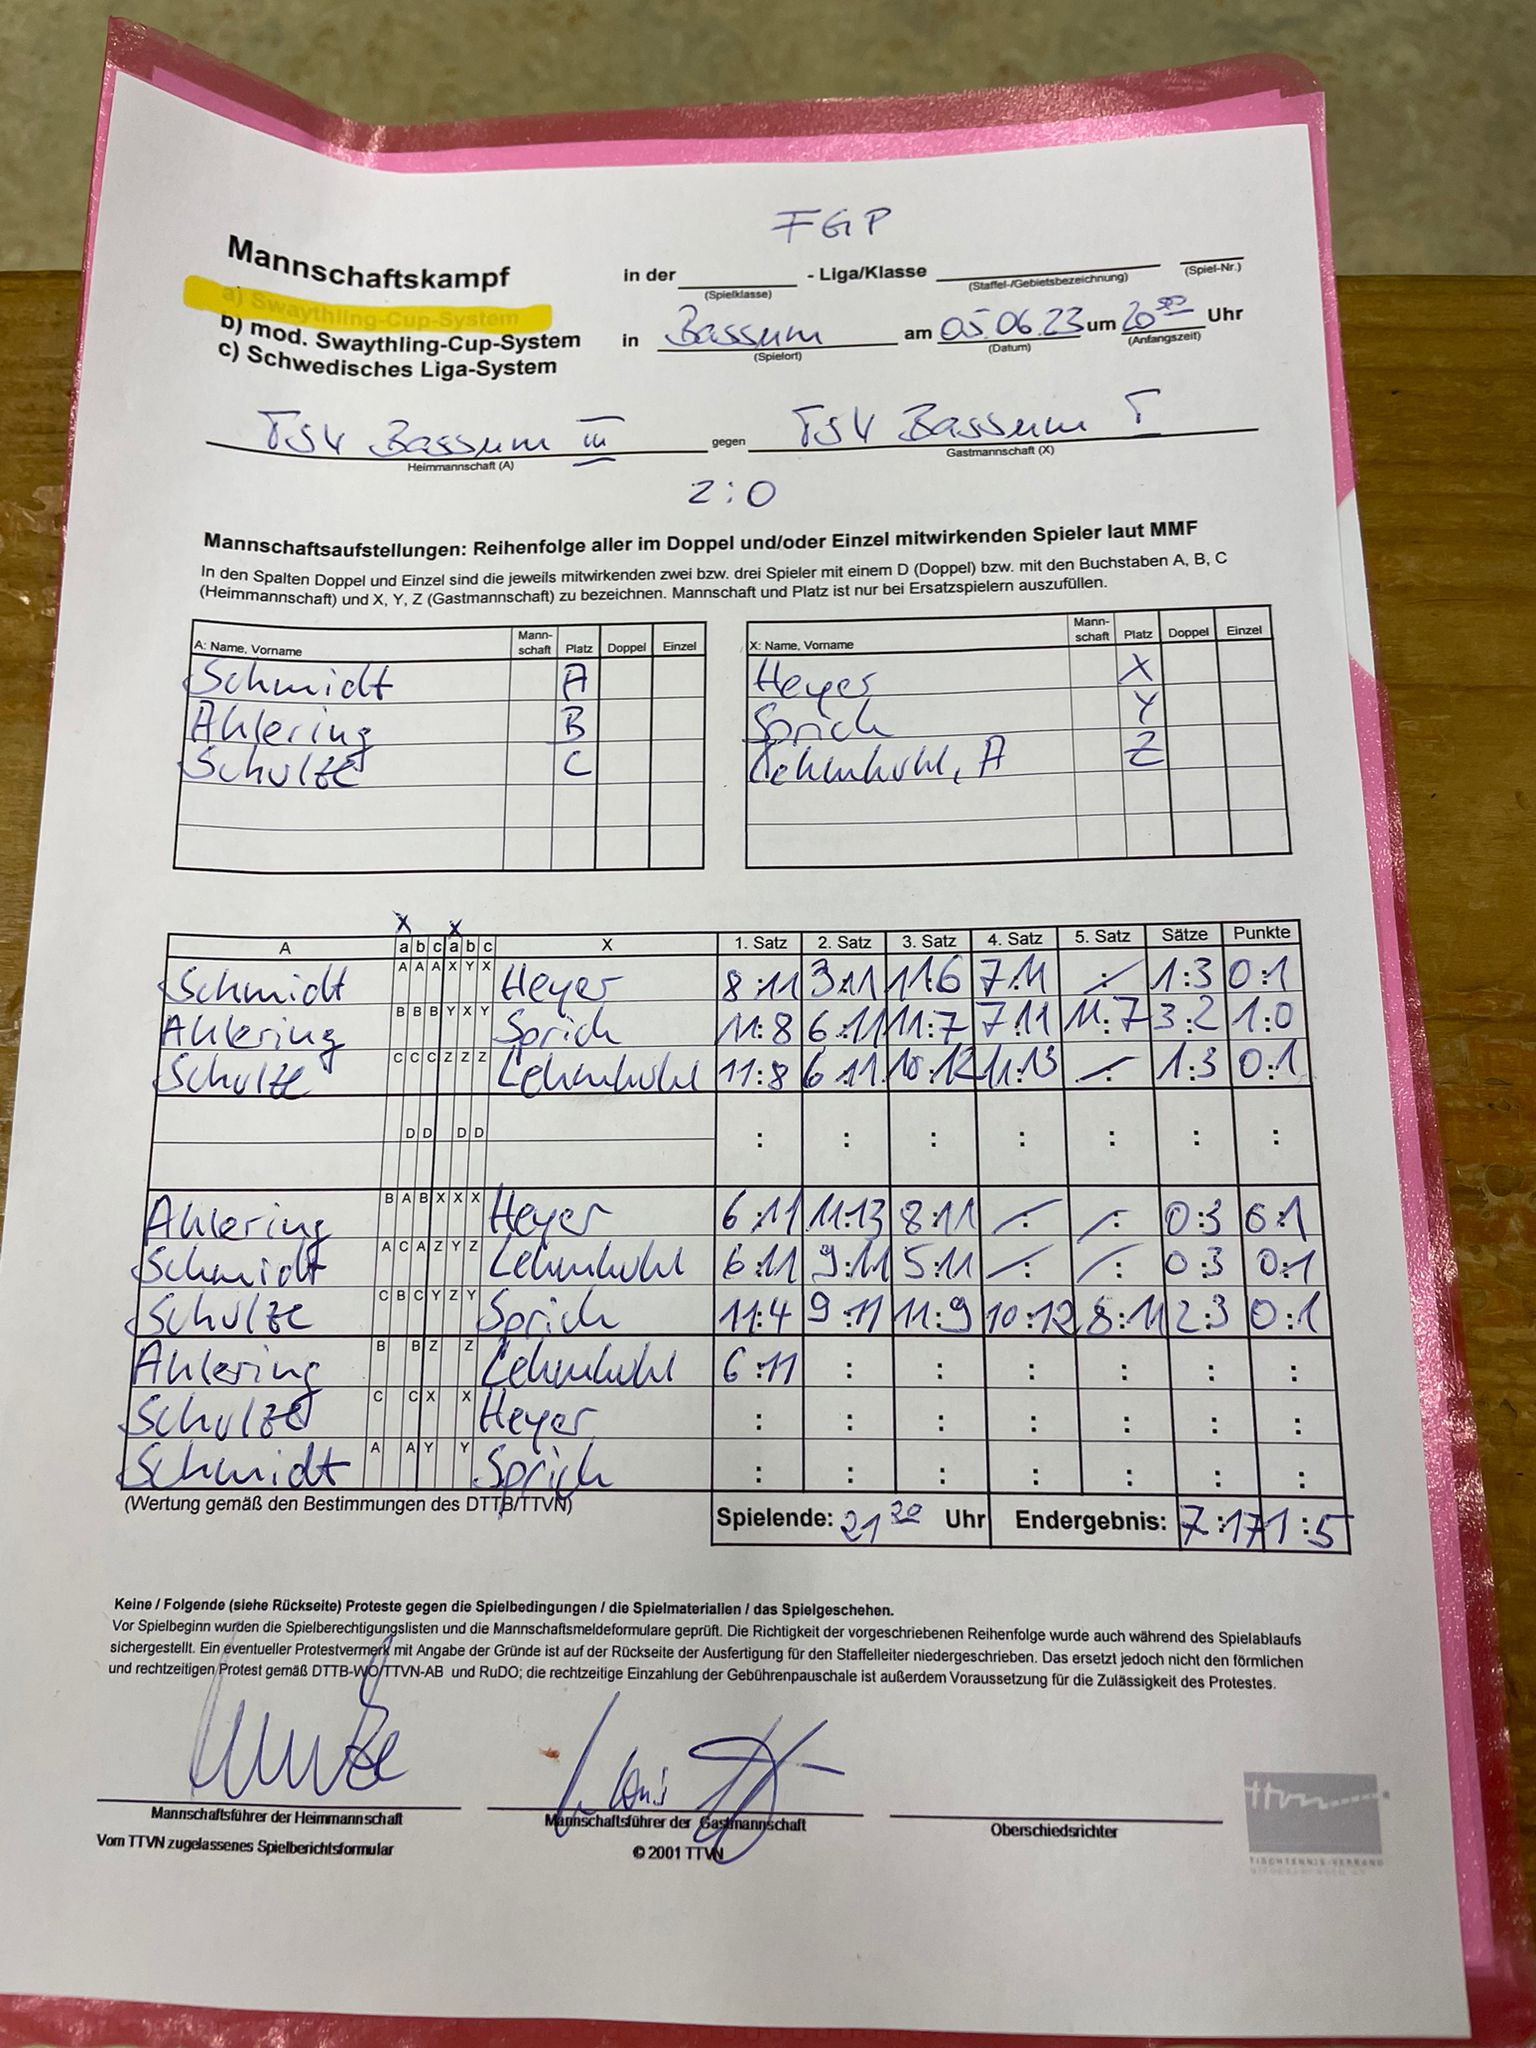 FGP
Mannschaftskampf
in der - Liga/Klasse
(Spielklasse) (Staffel-/Gebietsbezeichnung) (Spiel-Nr.)
a) Swaythling-Cup-System
b) mod. Swaythling-Cup-System
c) Schwedisches Liga-System
in Bassum am 05.06.23 um 20 00 Uhr
(Spielort) (Datum) (Anfangszeit)
TSV Bassum III gegen TSV Bassum I
Heimmannschaft (A) Gastmannschaft (X)
2:0
Mannschaftsaufstellungen: Reihenfolge aller im Doppel und/oder Einzel mitwirkenden Spieler laut MMF
In den Spalten Doppel und Einzel sind die jeweils mitwirkenden zwei bzw. drei Spieler mit einem D (Doppel) bzw. mit den Buchstaben A, B, C
(Heimmannschaft) und X, Y, Z (Gastmannschaft) zu bezeichnen. Mannschaft und Platz ist nur bei Ersatzspielern auszufüllen.
A: Name, Vorname Mann-schaft Platz Doppel Einzel X: Name, Vorname Mann-schaft Platz Doppel Einzel
Schmidt A Heyer X
Ahlering B Sprich Y
Schulze C Lehmkuhl, A Z
X X
A a b c a b c X 1. Satz 2. Satz 3. Satz 4. Satz 5. Satz Sätze Punkte
Schmidt A A A X Y X Heyer 8:11 3:11 11:6 7:11 : 1:3 0:1
Ahlering B B B Y X Y Sprich 11:8 6:11 11:7 7:11 11:7 3:2 1:0
Schulze C C C Z Z Z Lehmkuhl 11:8 6:11 10:12 11:13 : 1:3 0:1
D D D D : : : : : : :
Ahlering B A B X X X Heyer 6:11 11:13 8:11 : : 0:3 0:1
Schmidt A C A Z Y Z Lehmkuhl 6:11 9:11 5:11 : : 0:3 0:1
Schulze C B C Y Z Y Sprich 11:4 9:11 11:9 10:12 8:11 2:3 0:1
Ahlering B B Z Z Lehmkuhl 6:11 : : : : : :
Schulze C C X X Heyer : : : : : : :
Schmidt A A Y Y Sprich : : : : : : :
(Wertung gemäß den Bestimmungen des DTTB/TTVN) Spielende: 21 20 Uhr Endergebnis: 7:17 1:5
Keine / Folgende (siehe Rückseite) Proteste gegen die Spielbedingungen / die Spielmaterialien / das Spielgeschehen.
Vor Spielbeginn wurden die Spielberechtigungslisten und die Mannschaftsmeldeformulare geprüft. Die Richtigkeit der vorgeschriebenen Reihenfolge wurde auch während des Spielablaufs
sichergestellt. Ein eventueller Protestvermerk mit Angabe der Gründe ist auf der Rückseite der Ausfertigung für den Staffelleiter niedergeschrieben. Das ersetzt jedoch nicht den förmlichen
und rechtzeitigen Protest gemäß DTTB-WO/TTVN-AB und RuDO; die rechtzeitige Einzahlung der Gebührenpauschale ist außerdem Voraussetzung für die Zulässigkeit des Protestes.
Mannschaftsführer der Heimmannschaft Mannschaftsführer der Gastmannschaft Oberschiedsrichter
Vom TTVN zugelassenes Spielberichtsformular © 2001 TTVN
ttvn
TISCHTENNIS-VERBAND